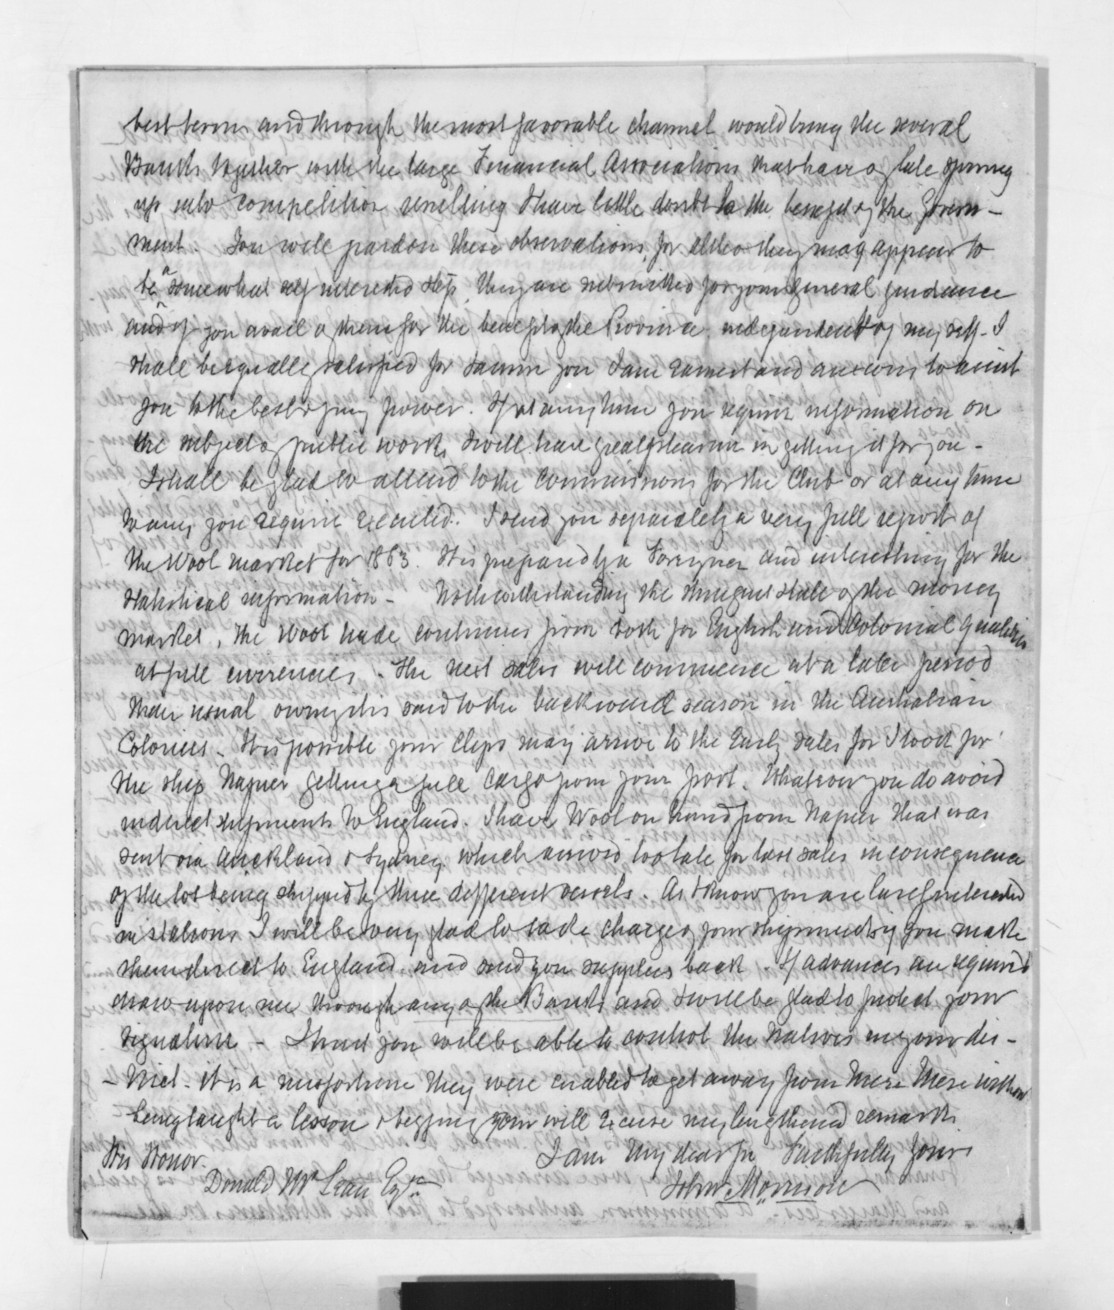 best terms and through the most favorable channel would bring the several
Banks together with the large Financial Associations that have of late sprung
up into competition resulting I have little doubt to the benefit of the Govern-
ment. You will pardon these observations, for altho they may appear to
be a somewhat self interested step, they are submitted for your general guidance
and if you avail of them for the benefit of the Province independently of my self. I
shall be equally satisfied for I assure you I am earnest and anxious to assist
you to the best of my power. If at any time you require information on
the subject of public works I will have great pleasure in getting it for you -
I shall be glad to attend to the commissions for the Club or at any time
to any you require executed. I send you separately a very full report of
the Wool market for 1863. It is prepared by a Foreigner and interesting for the
statistical information - Notwithstanding the stringent state of the money
market, the Wool trade continues firm both for English and Colonial qualities
at full currencies. The next sales will commence at a later period
than usual owing it is said to the backward season in the Australian
Colonies. It is possible your Clips may arrive to the Early sales for I look for
the ship Napier getting a full cargo from your port. Whatever you do avoid
indirect shipments to England. I have Wool on hand from Napier that was
sent via Auckland & Sydney which arrived too late for last sales in consequence
of the lot being shipped by three different vessels. As I know you are largely interested
in stations I will be very glad to take charge of your shipments if you make
them direct to England and send you supplies back If advances are required
draw upon me through any of the Banks and I will be glad to protect your
signature - I trust you will be able to control the natives in your dis-
- trict. It is a misfortune they were enabled to get away from Mere Mere without
being taught a lesson & begging you will Excuse my lengthened remarks.
I am My dear Sir Faithfully Yours
His Honor.
Donald McLean Esqre
John Morrison